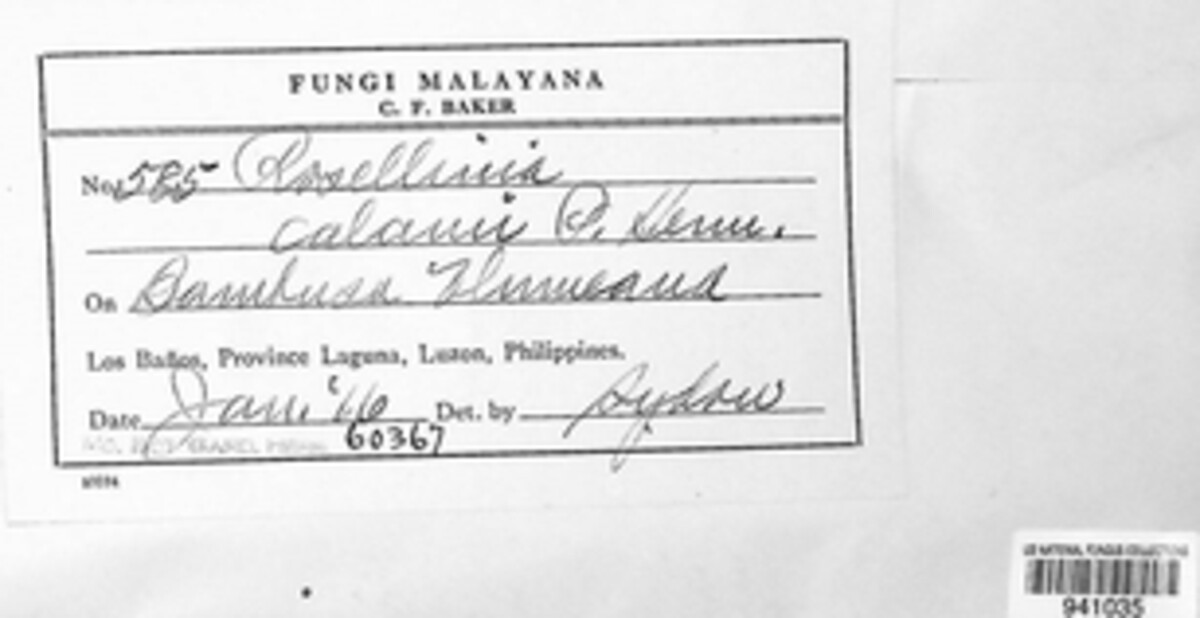 FUNGI MALAYANA
C. F. BAKER
No. 585 Rosellinia
calami P. Henn.
On Bambusa Blumeana
Los Baños, Province Laguna, Luzon, Philippines.
Date Jan. '16 Det. by Sydow
60367
US NATIONAL FUNGUS COLLECTIONS
941035